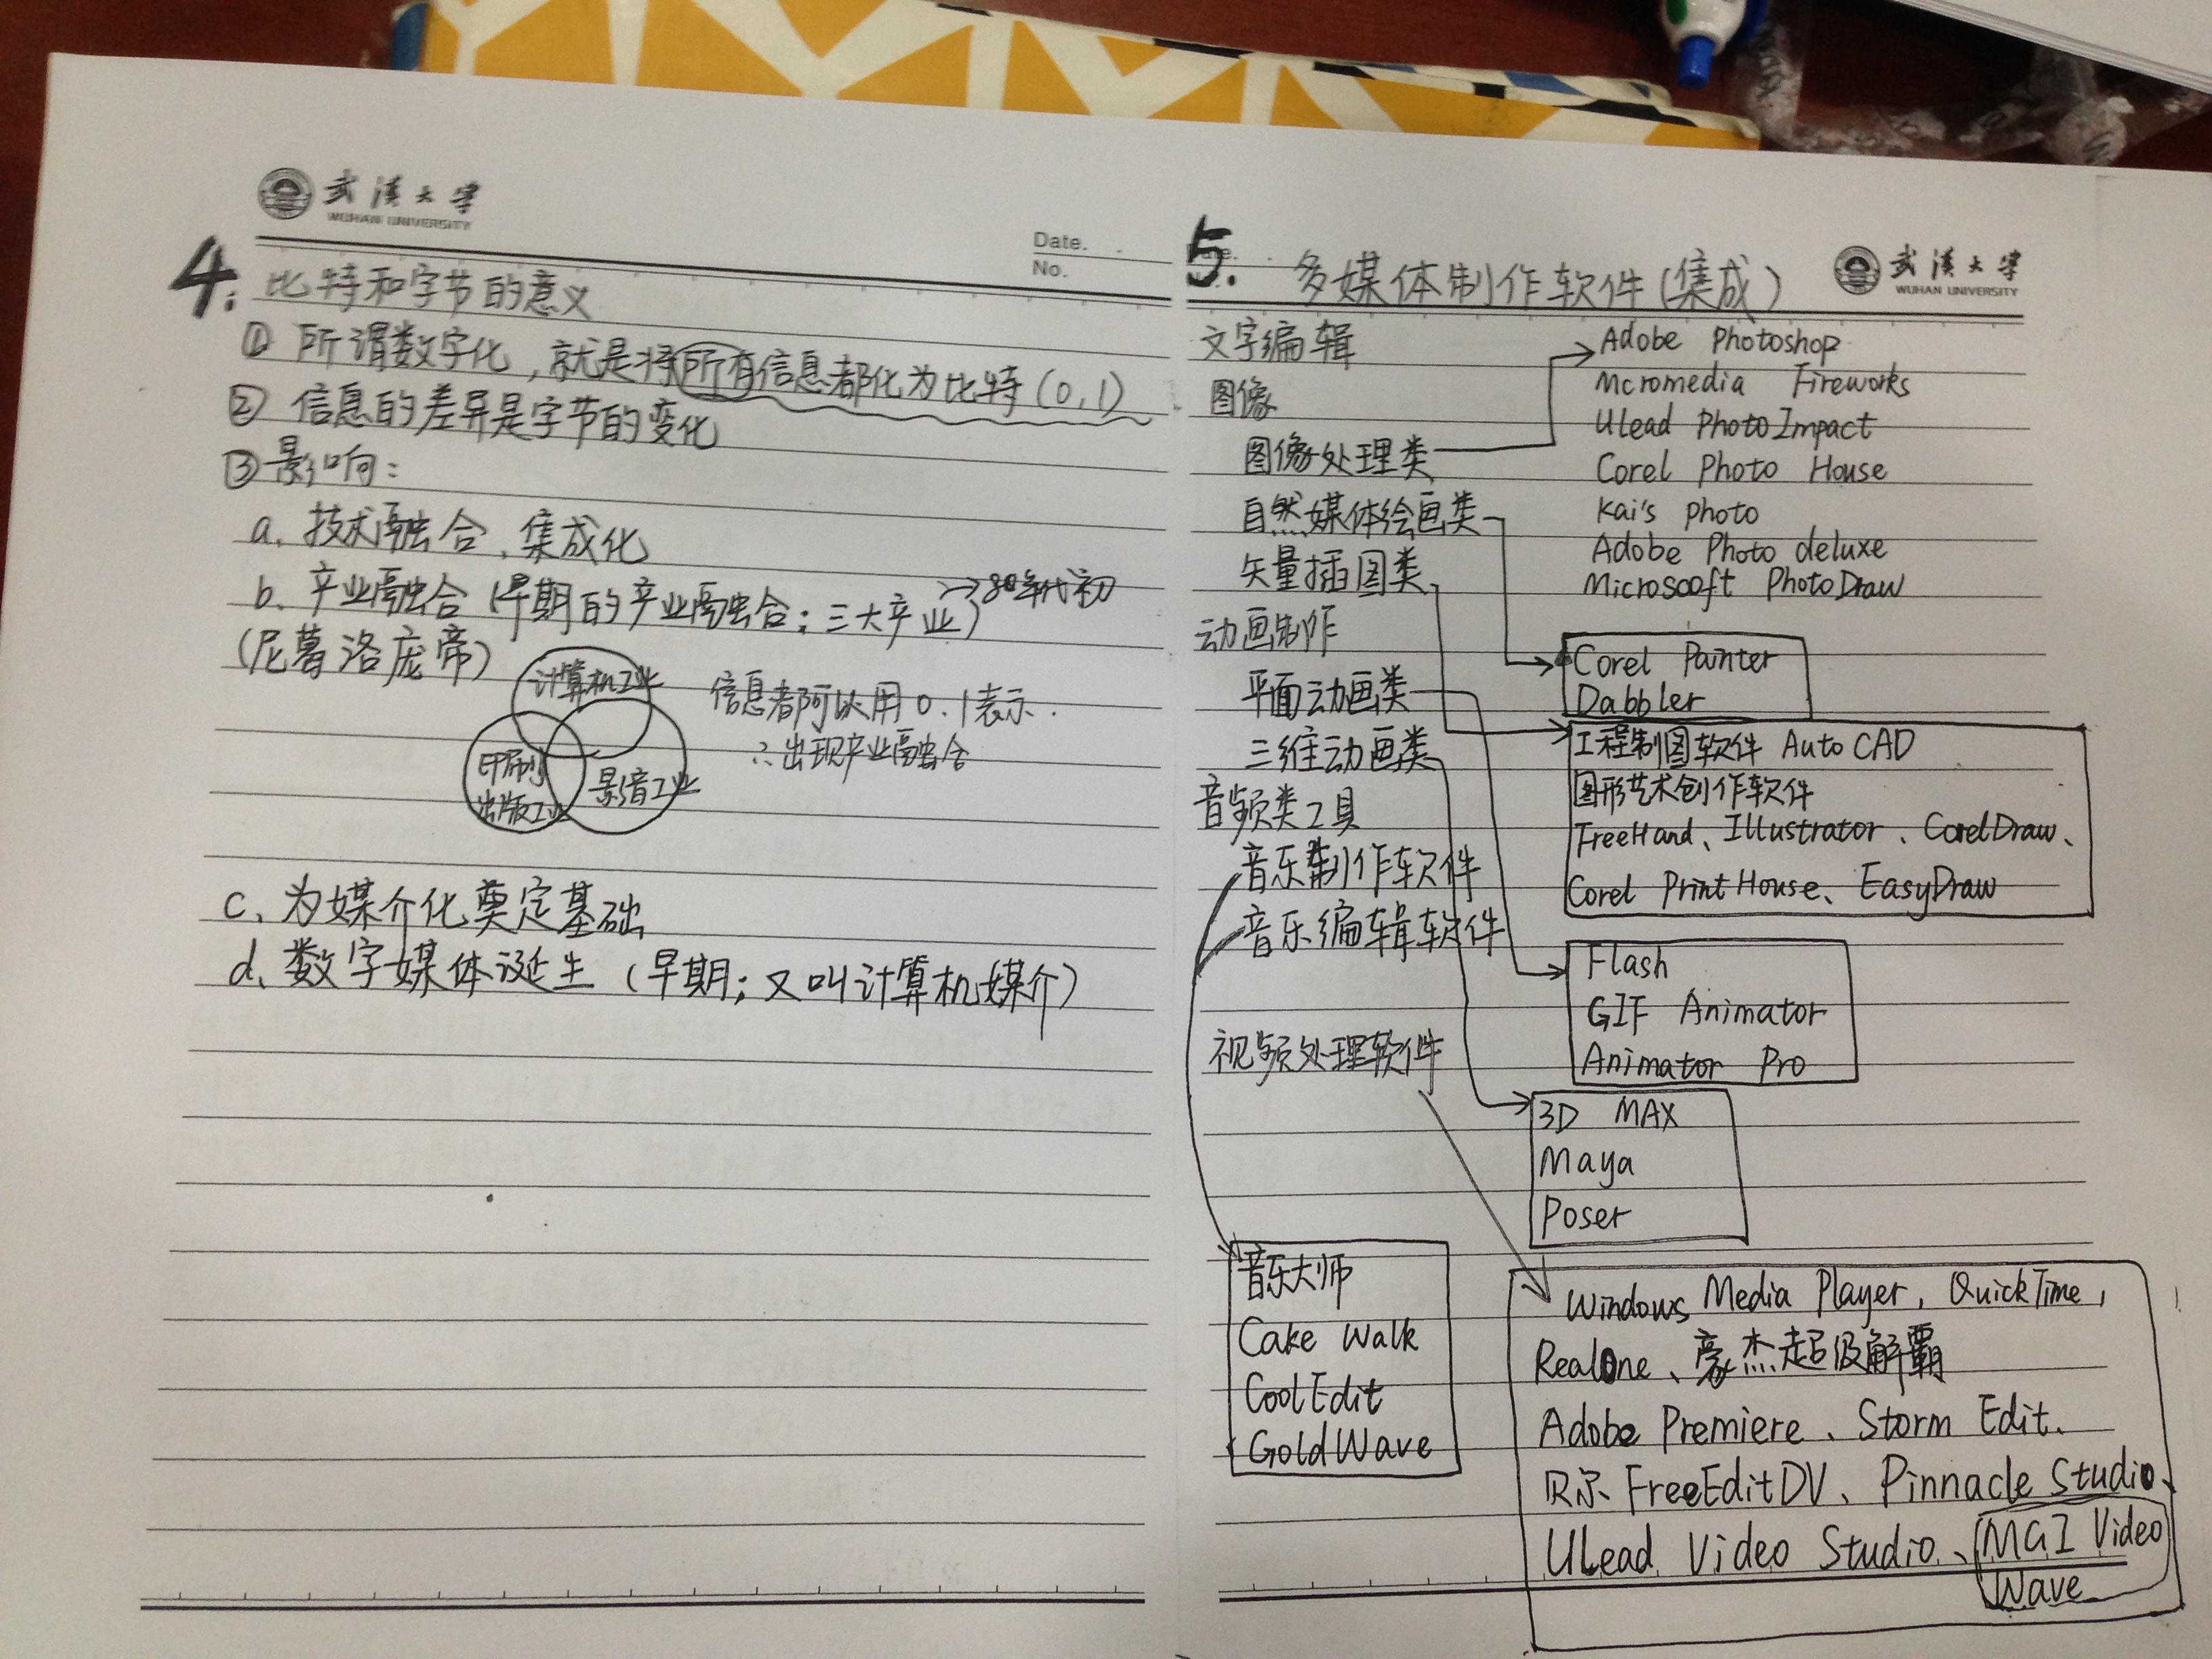 武漢大學
WUHAN UNIVERSITY
Date.
No.
4:
比特和字节的意义
① 所谓数字化，就是将所有信息都化为比特 (0,1)
② 信息的差异是字节的变化
③ 影响：
a. 技术融合、集成化
b. 产业融合 (早期的产业融合：三大产业) →80年代初
(尼葛洛庞帝)
计算机工业
印刷
出版工业
影播工业
信息都可以用 0、1 表示.
∴出现产业融合
c. 为媒介化奠定基础
d. 数字媒体诞生 (早期：又叫计算机媒介)
武漢大學
WUHAN UNIVERSITY
5.
多媒体制作软件 (集成)
文字编辑
图像
图像处理类
Adobe Photoshop
Mcromedia Fireworks
Ulead PhotoImpact
Corel Photo House
Kai's photo
Adobe Photo deluxe
Microsooft PhotoDraw
自然媒体绘画类
Corel Painter
Dabbler
矢量插图类
工程制图软件 AutoCAD
图形艺术创作软件
FreeHand、Illustrator、CorelDraw、
Corel PrintHouse、EasyDraw
动画制作
平面动画类
Flash
GIF Animator
Animator Pro
三维动画类
3D MAX
Maya
Poser
音频类工具
音乐制作软件
音乐编辑软件
音乐大师
Cake Walk
CoolEdit
GoldWave
视频处理软件
Windows Media Player、QuickTime、
RealOne、
Adobe Premiere、Storm Edit.
FreeEditDV、Pinnacle Studio、
Ulead Video Studio、MGI Video
Wave